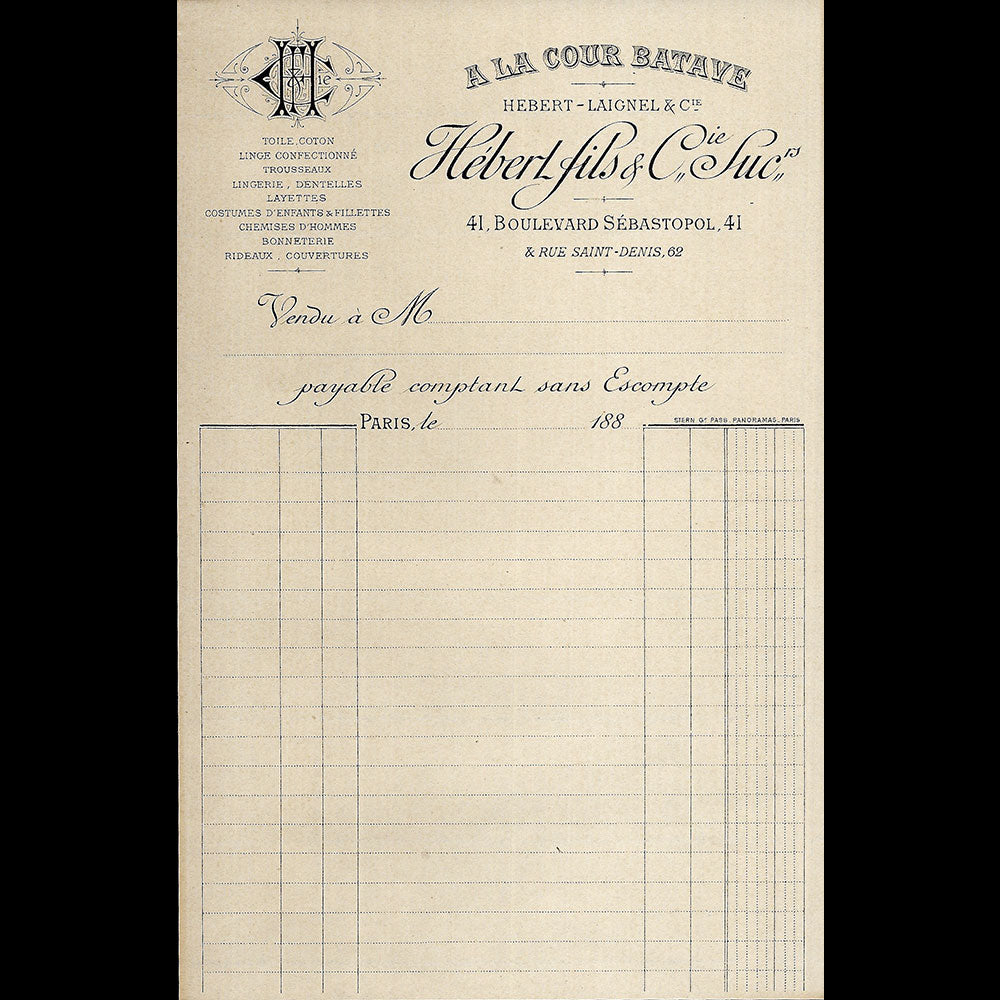 HF&Cie
TOILE, COTON
LINGE CONFECTIONNÉ
TROUSSEAUX
LINGERIE, DENTELLES
LAYETTES
COSTUMES D'ENFANTS & FILLETTES
CHEMISES D'HOMMES
BONNETERIE
RIDEAUX, COUVERTURES
A LA COUR BATAVE
HEBERT-LAIGNEL & CIE
Hébert fils & Cie Sucrs
41, BOULEVARD SÉBASTOPOL, 41
& RUE SAINT-DENIS, 62
Vendu à M
payable comptant sans Escompte
PARIS, le 188
STERN Gr PASS. PANORAMAS. PARIS